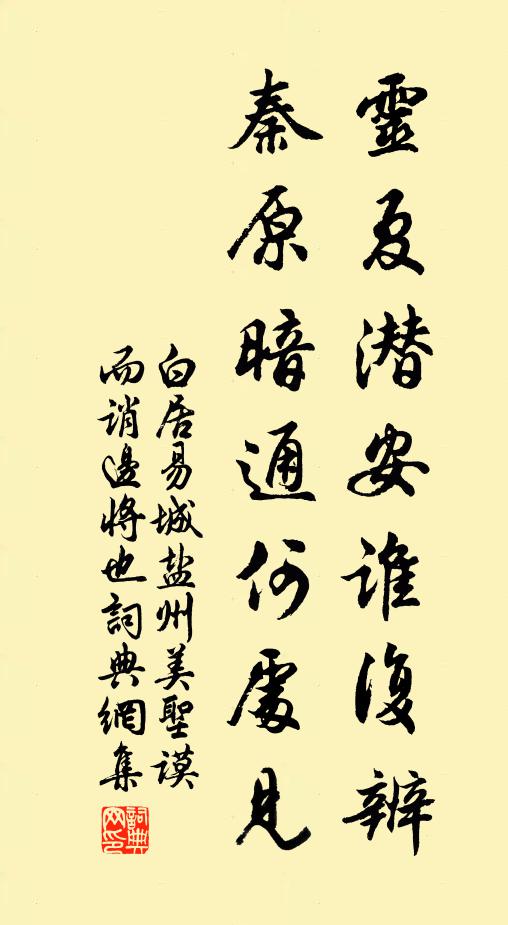 靈夏潜安誰復辨
秦原暗通何處見
白居易城盐州美聖謨
而誚邊將也詞典網集
詞典网印